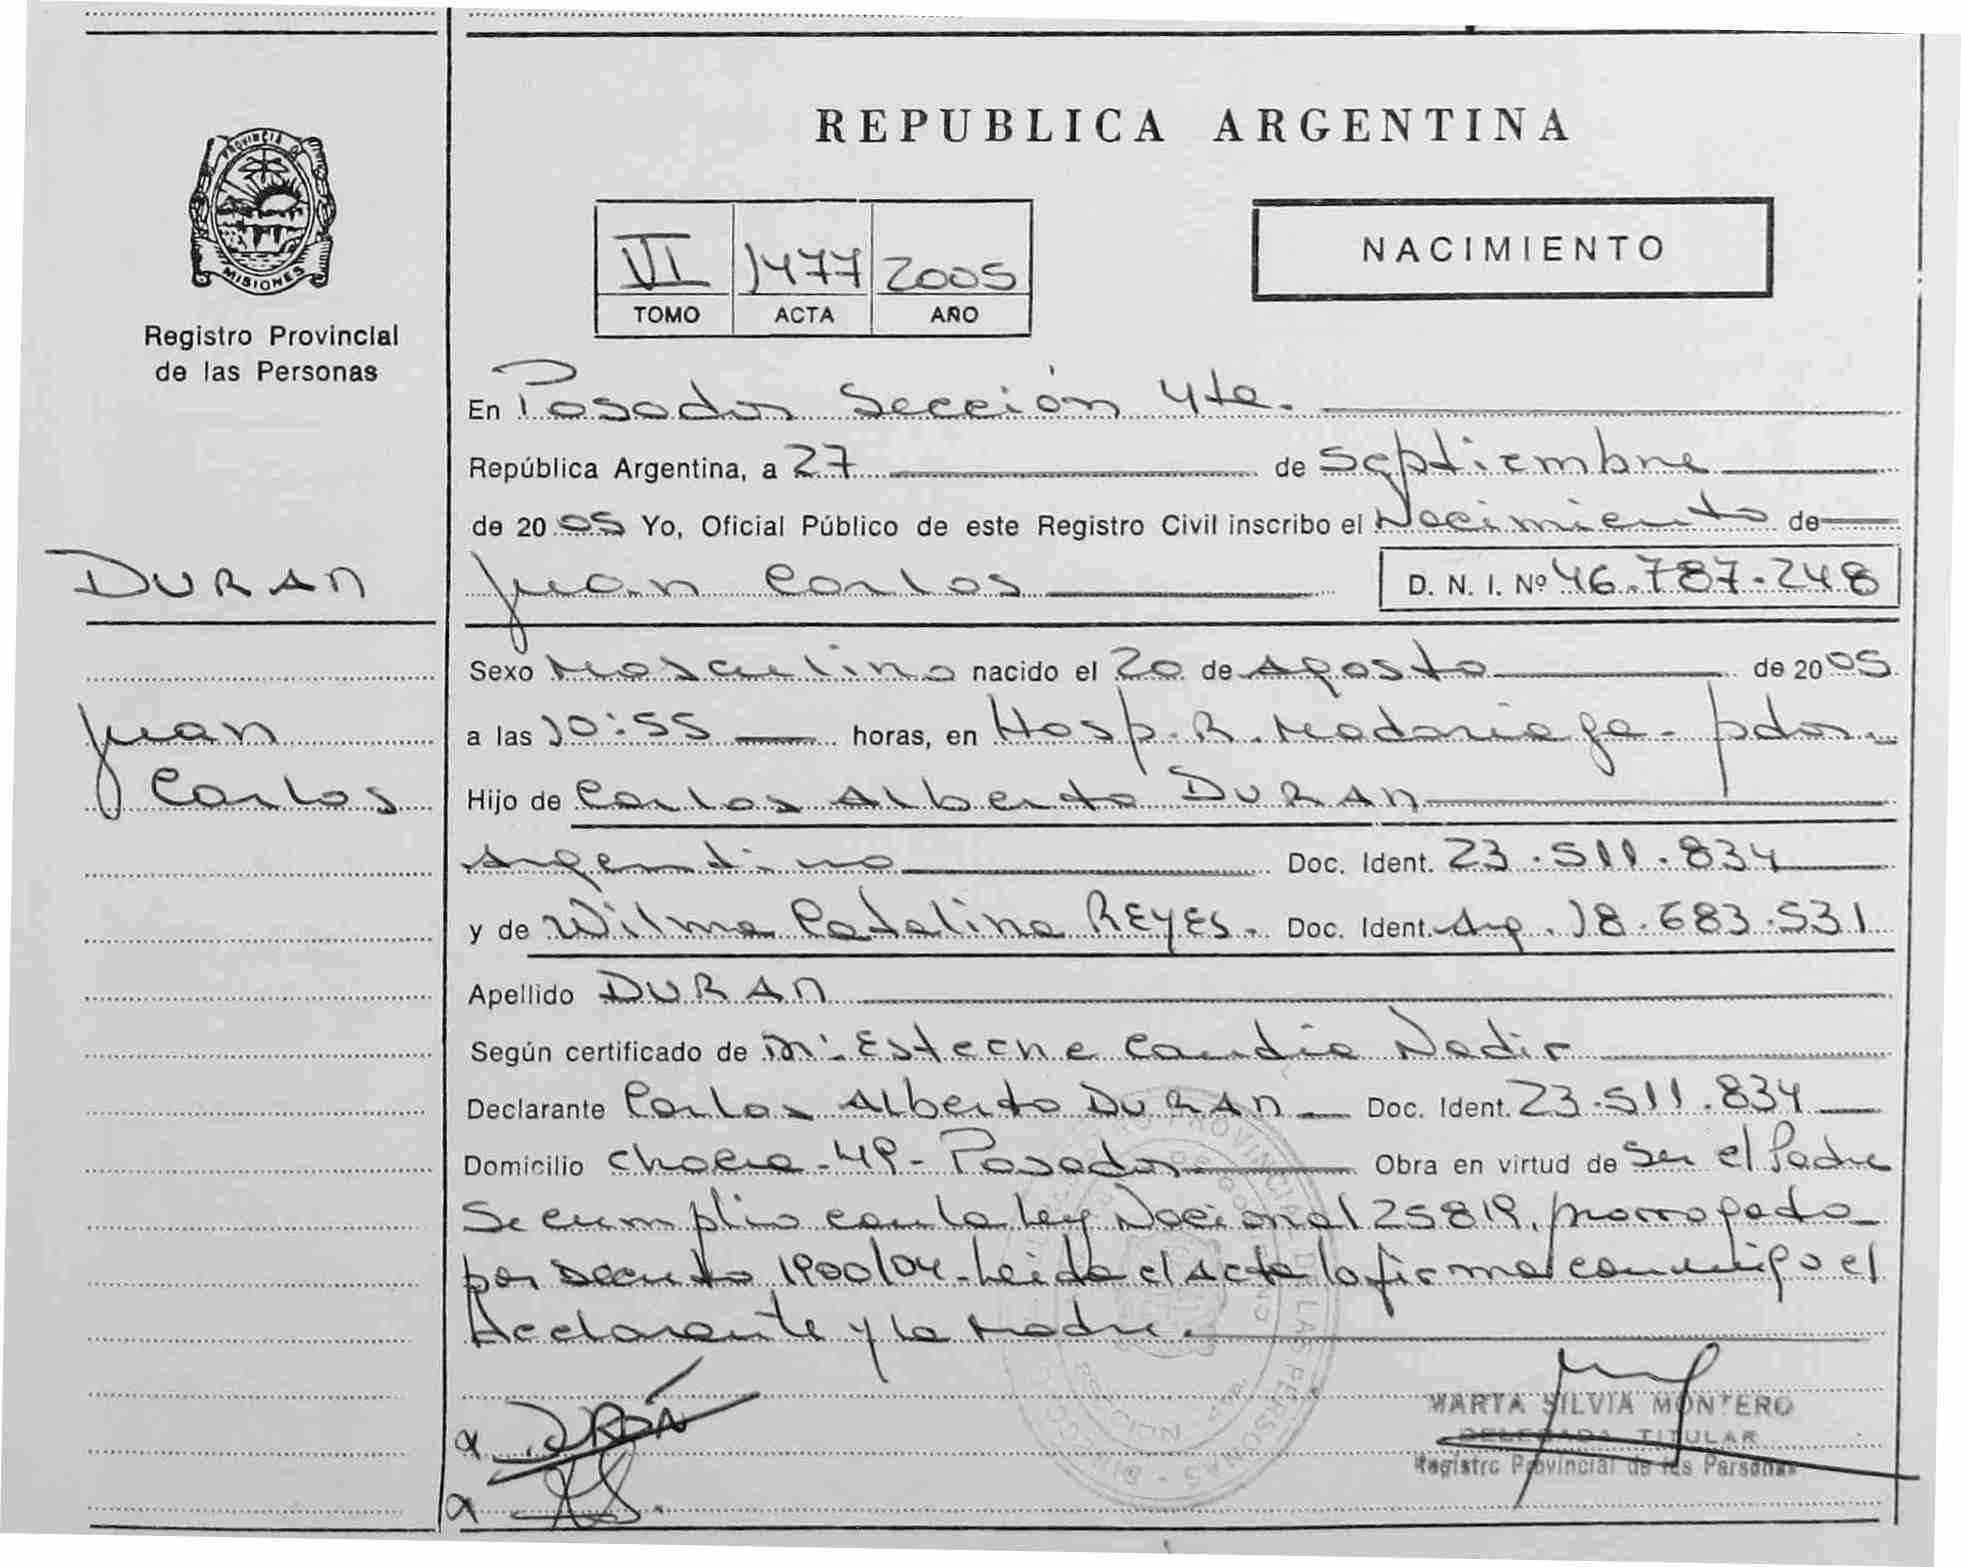 REPUBLICA ARGENTINA
PROVINCIA DE
MISIONES
Registro Provincial
de las Personas
VI 1477 2005
TOMO ACTA AÑO
NACIMIENTO
En Posadas Sección 4ta.
República Argentina, a 27 de Septiembre
de 2005 Yo, Oficial Público de este Registro Civil inscribo el Nacimiento de
DURAN
Juan Carlos D. N. I. Nº 46.787.248
Sexo Masculino nacido el 20 de Agosto de 2005
Juan
Carlos
a las 10:55 horas, en Hosp. R. Madariaga - pdas.
Hijo de Carlos Alberto DURAN
Argentino Doc. Ident. 23.511.834
y de Wilma Catalina REYES. Doc. Ident. Arg. 18.683.531
Apellido DURAN
Según certificado de Esteche Nadir
Declarante Carlos Alberto DURAN Doc. Ident. 23.511.834
Domicilio Chacra - 49 - Posadas Obra en virtud de Ser el Padre
Se cumplio con la ley Nacional 25819, prorrogada
por Decreto 1900/04 - Leida el Acta la firma conmigo el
declarante y la Madre.
DURÁN
MARTA SILVIA MONTERO
DELEGADA TITULAR
Registro Provincial de las Personas